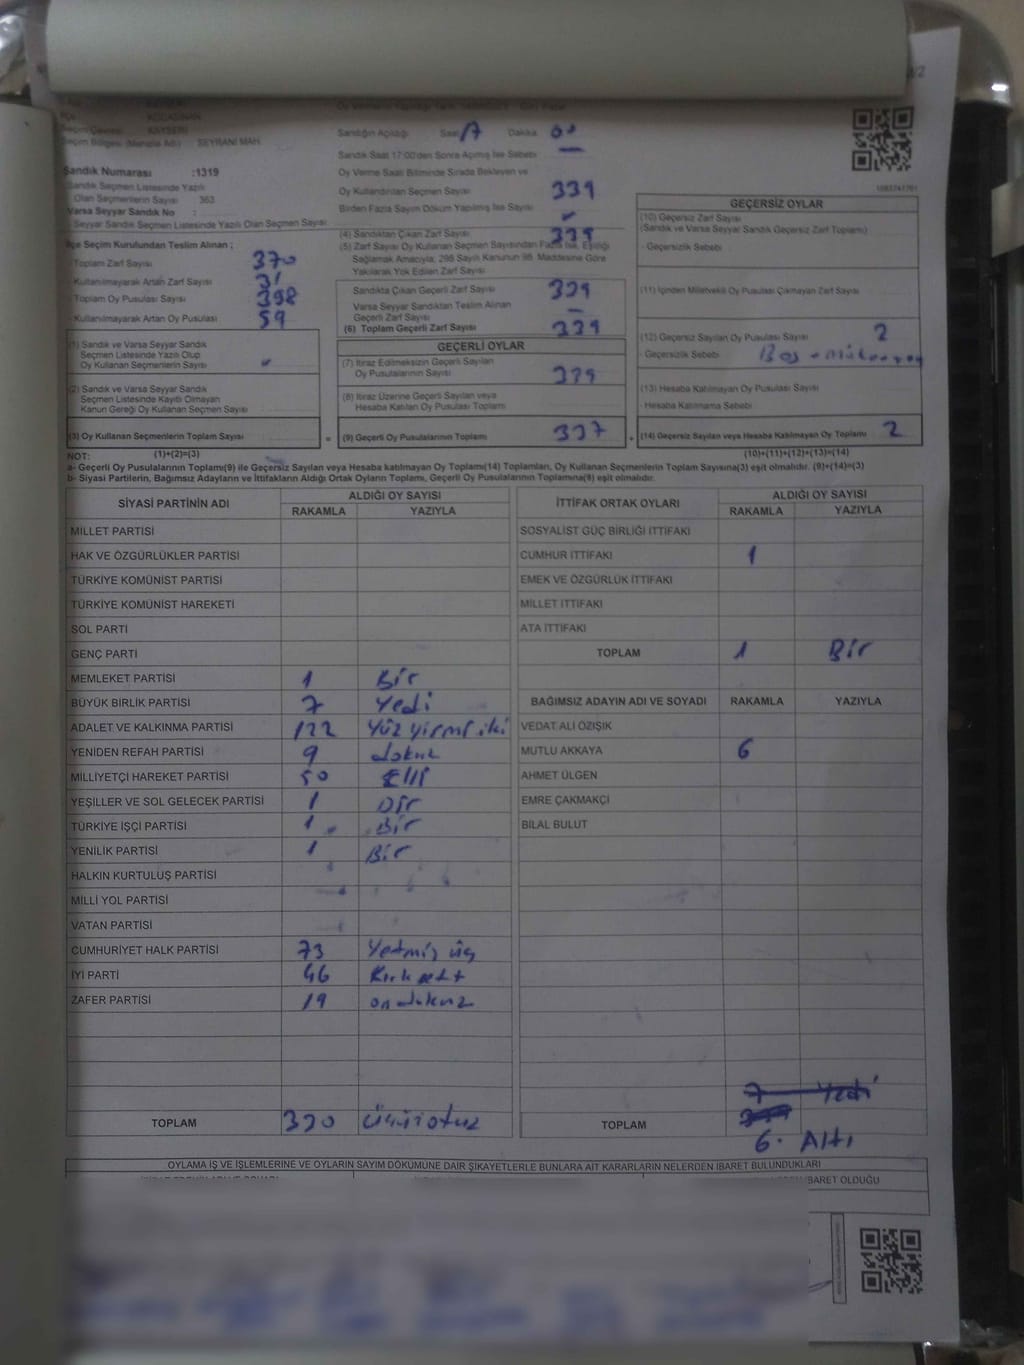 /2
KOCASİNAN
Seçim Çevresi : KAYSERİ
Seçim Bölgesi (Mahalle Adı) : SEYRANİ MAH.
Sandık Numarası :1319
Sandık Seçmen Listesinde Yazılı
Olan Seçmenlerin Sayısı : 363
Varsa Seyyar Sandık No :
Seyyar Sandık Seçmen Listesinde Yazılı Olan Seçmen Sayısı:
İlçe Seçim Kurulundan Teslim Alınan ;
- Toplam Zarf Sayısı 370
- Kullanılmayarak Artan Zarf Sayısı 31
- Toplam Oy Pusulası Sayısı 398
- Kullanılmayarak Artan Oy Pusulası 59
(1) Sandık ve Varsa Seyyar Sandık
Seçmen Listesinde Yazılı Olup
Oy Kullanan Seçmenlerin Sayısı
(2) Sandık ve Varsa Seyyar Sandık
Seçmen Listesinde Kayıtlı Olmayan
Kanun Gereği Oy Kullanan Seçmen Sayısı
(3) Oy Kullanan Seçmenlerin Toplam Sayısı
Sandığın Açıldığı Saat 17 Dakika 00
Sandık Saat 17:00'den Sonra Açılmış İse Sebebi
Oy Verme Saati Bitiminde Sırada Bekleyen ve
Oy Kullandırılan Seçmen Sayısı 339
Birden Fazla Sayım Döküm Yapılmış İse Sayısı
(4) Sandıktan Çıkan Zarf Sayısı 339
(5) Zarf Sayısı Oy Kullanan Seçmen Sayısından Fazla İse, Eşitliği
Sağlamak Amacıyla; 298 Sayılı Kanunun 98. Maddesine Göre
Yakılarak Yok Edilen Zarf Sayısı
Sandıkta Çıkan Geçerli Zarf Sayısı 339
Varsa Seyyar Sandıktan Teslim Alınan
Geçerli Zarf Sayısı –
(6) Toplam Geçerli Zarf Sayısı 339
GEÇERLİ OYLAR
(7) İtiraz Edilmeksizin Geçerli Sayılan
Oy Pusulalarının Sayısı
(8) İtiraz Üzerine Geçerli Sayılan veya
Hesaba Katılan Oy Pusulası Toplamı
= (9) Geçerli Oy Pusulalarının Toplamı 337
GEÇERSİZ OYLAR
(10) Geçersiz Zarf Sayısı
(Sandık ve Varsa Seyyar Sandık Geçersiz Zarf Toplamı)
- Geçersizlik Sebebi
(11) İçinden Milletvekili Oy Pusulası Çıkmayan Zarf Sayısı
(12) Geçersiz Sayılan Oy Pusulası Sayısı 2
- Geçersizlik Sebebi Boş
(13) Hesaba Katılmayan Oy Pusulası Sayısı
- Hesaba Katılmama Sebebi
+ (14) Geçersiz Sayılan veya Hesaba Katılmayan Oy Toplamı 2
NOT: (1)+(2)=(3) (10)+(11)+(12)+(13)=(14)
a- Geçerli Oy Pusulalarının Toplamı(9) ile Geçersiz Sayılan veya Hesaba katılmayan Oy Toplamı(14) Toplamları, Oy Kullanan Seçmenlerin Toplam Sayısına(3) eşit olmalıdır. (9)+(14)=(3)
b- Siyasi Partilerin, Bağımsız Adayların ve İttifakların Aldığı Ortak Oyların Toplamı, Geçerli Oy Pusulalarının Toplamına(9) eşit olmalıdır.
SİYASİ PARTİNİN ADI ALDIĞI OY SAYISI
RAKAMLA YAZIYLA
MİLLET PARTİSİ
HAK VE ÖZGÜRLÜKLER PARTİSİ
TÜRKİYE KOMÜNİST PARTİSİ
TÜRKİYE KOMÜNİST HAREKETİ
SOL PARTİ
GENÇ PARTİ
MEMLEKET PARTİSİ 1 Bir
BÜYÜK BİRLİK PARTİSİ 7 Yedi
ADALET VE KALKINMA PARTİSİ 122 Yüz yirmi iki
YENİDEN REFAH PARTİSİ 9 dokuz
MİLLİYETÇİ HAREKET PARTİSİ 50 Elli
YEŞİLLER VE SOL GELECEK PARTİSİ 1 Bir
TÜRKİYE İŞÇİ PARTİSİ 1 Bir
YENİLİK PARTİSİ 1 Bir
HALKIN KURTULUŞ PARTİSİ
MİLLİ YOL PARTİSİ
VATAN PARTİSİ
CUMHURİYET HALK PARTİSİ 73 Yetmiş üç
İYİ PARTİ 46 Kırk altı
ZAFER PARTİSİ 19 on dokuz
TOPLAM 330 Üçyüzotuz
İTTİFAK ORTAK OYLARI ALDIĞI OY SAYISI
RAKAMLA YAZIYLA
SOSYALİST GÜÇ BİRLİĞİ İTTİFAKI
CUMHUR İTTİFAKI 1
EMEK VE ÖZGÜRLÜK İTTİFAKI
MİLLET İTTİFAKI
ATA İTTİFAKI
TOPLAM 1 Bir
BAĞIMSIZ ADAYIN ADI VE SOYADI RAKAMLA YAZIYLA
VEDAT ALİ ÖZIŞIK
MUTLU AKKAYA 6
AHMET ÜLGEN
EMRE ÇAKMAKÇI
BİLAL BULUT
7 Yedi
TOPLAM
6. Altı
OYLAMA İŞ VE İŞLEMLERİNE VE OYLARIN SAYIM DÖKÜMÜNE DAİR ŞİKAYETLERLE BUNLARA AİT KARARLARIN NELERDEN İBARET BULUNDUKLARI
İBARET OLDUĞU